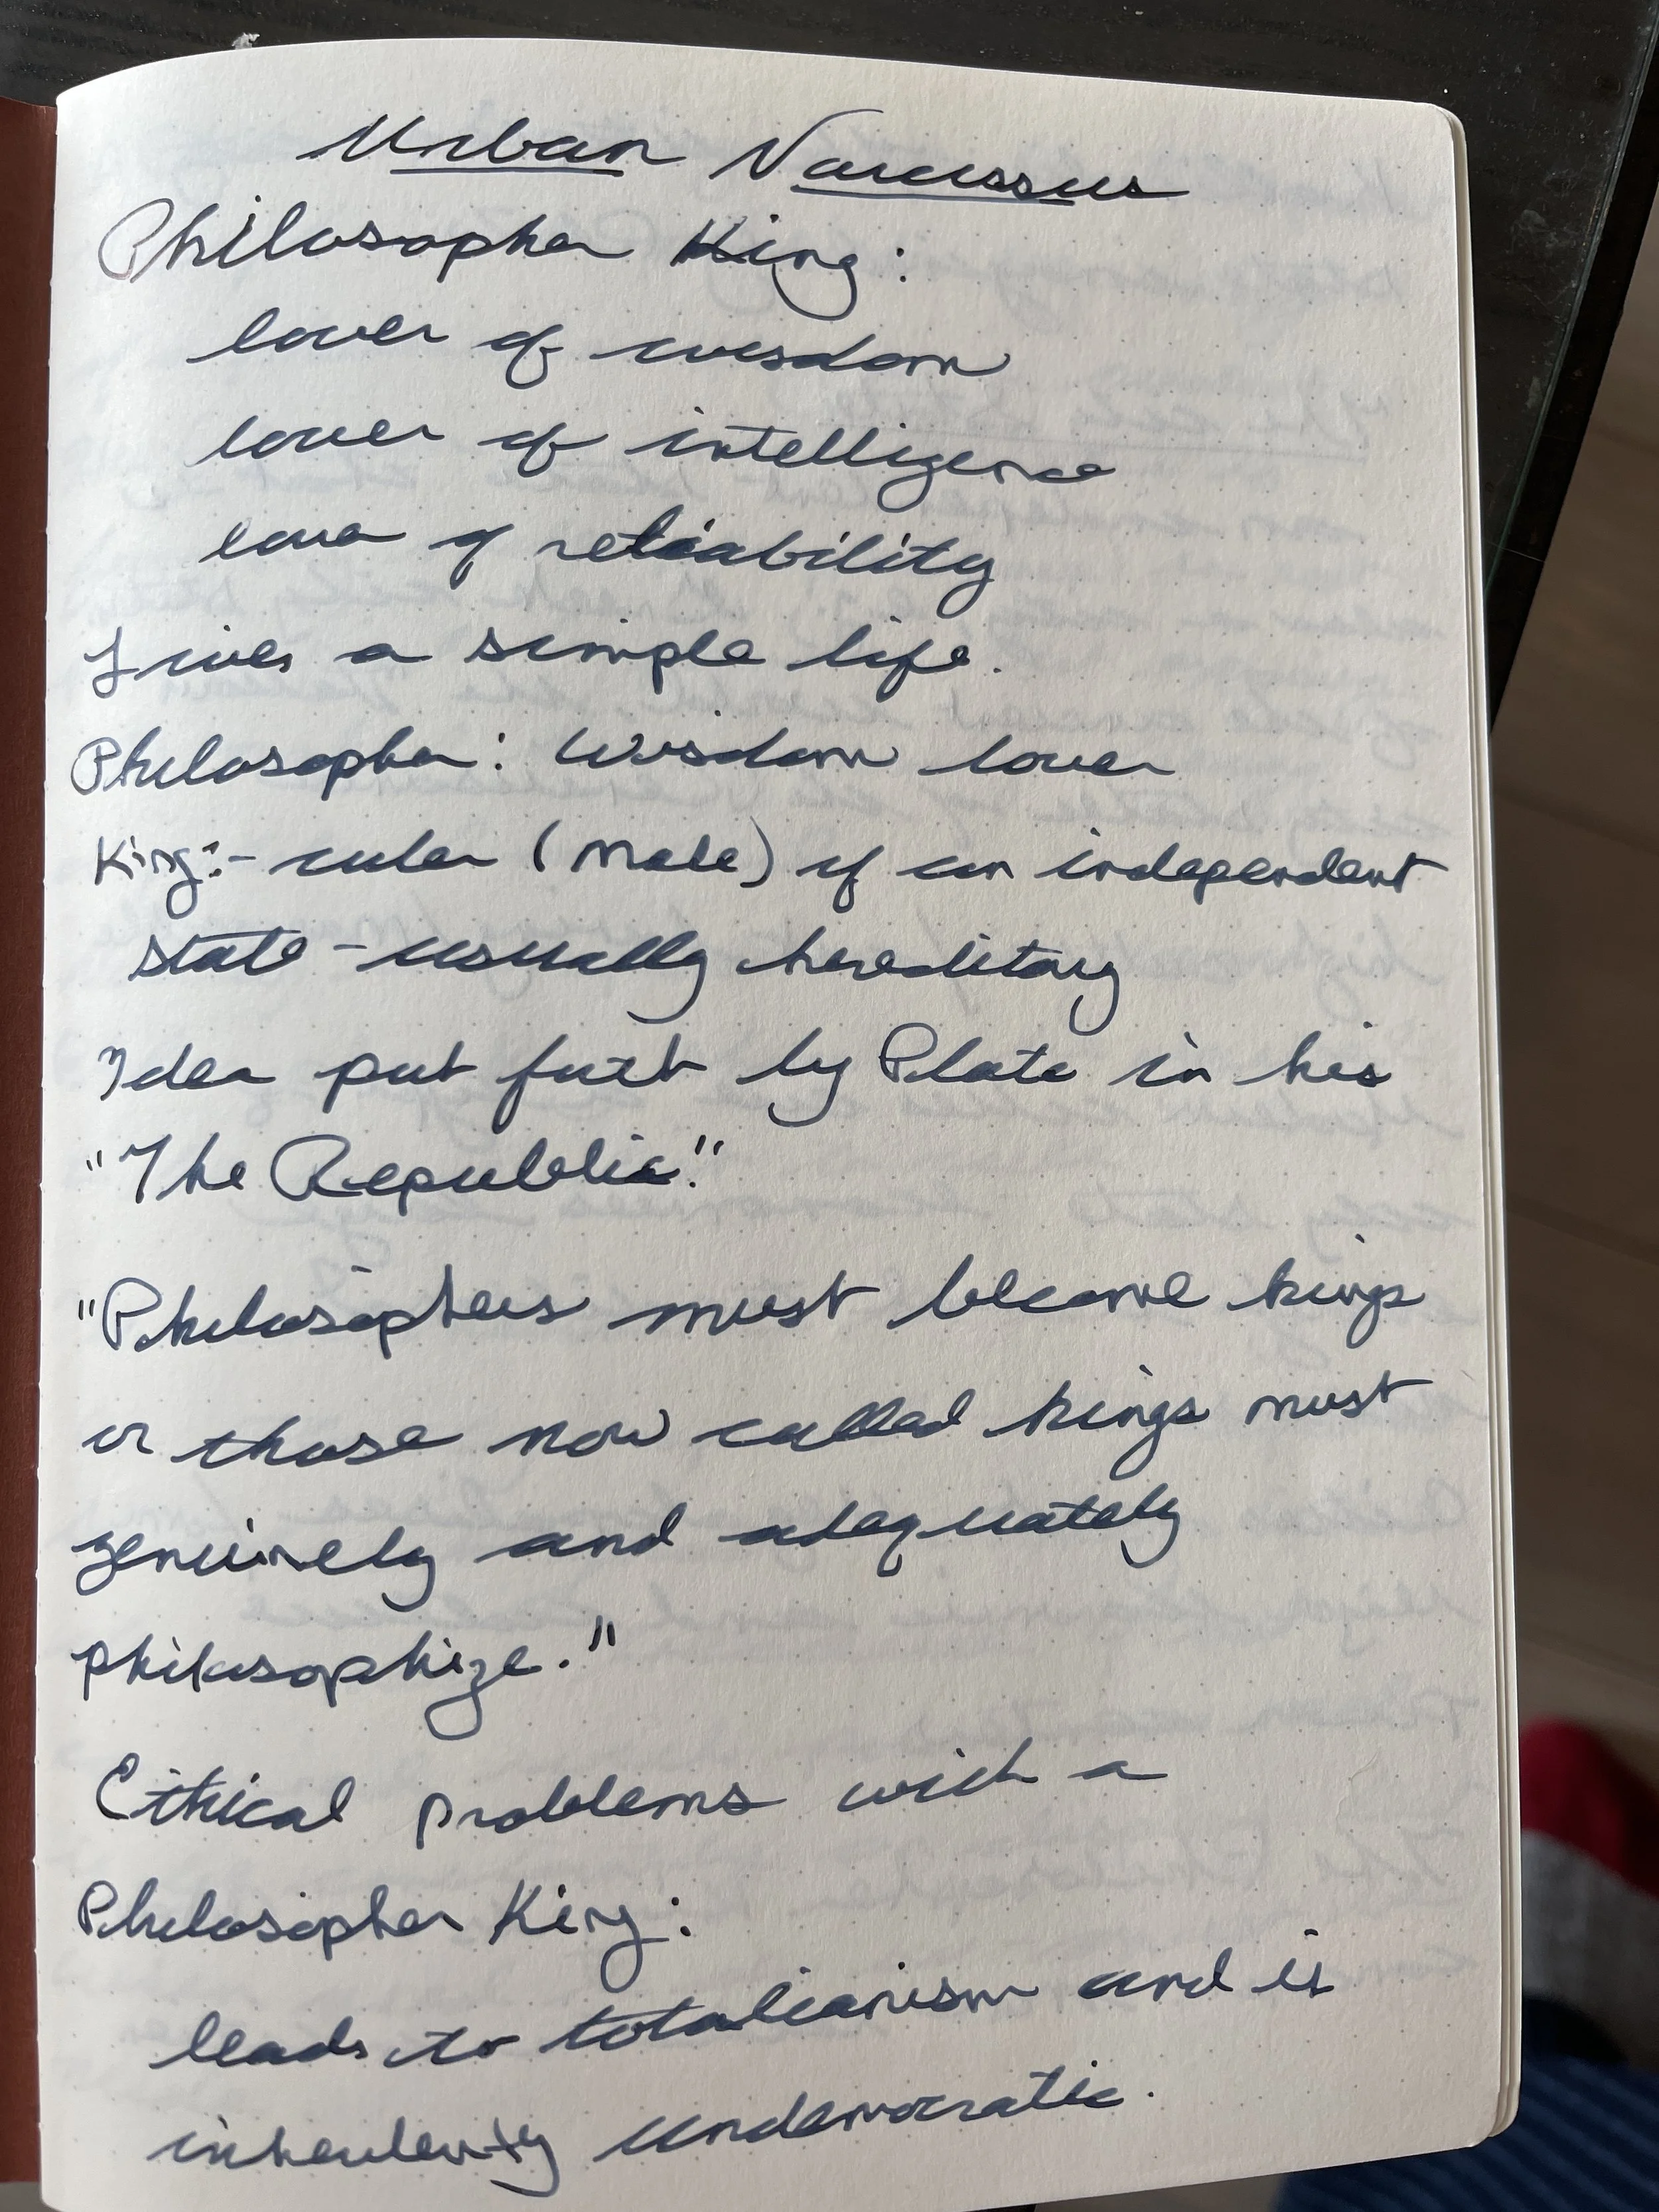 Urban Narcissus
Philosopher King:
lover of wisdom
lover of intelligence
love of reliability
Lives a simple life.
Philosopher: Wisdom lover
King:- ruler (Male) of an independent
state - usually hereditary
Idea put forth by Plato in his
"The Republic."
"Philosophers must become kings
or those now called kings must
genuinely and adequately
philosophize."
Ethical problems with a
Philosopher King:
leads to totalianism and is
inherently undemocratic.